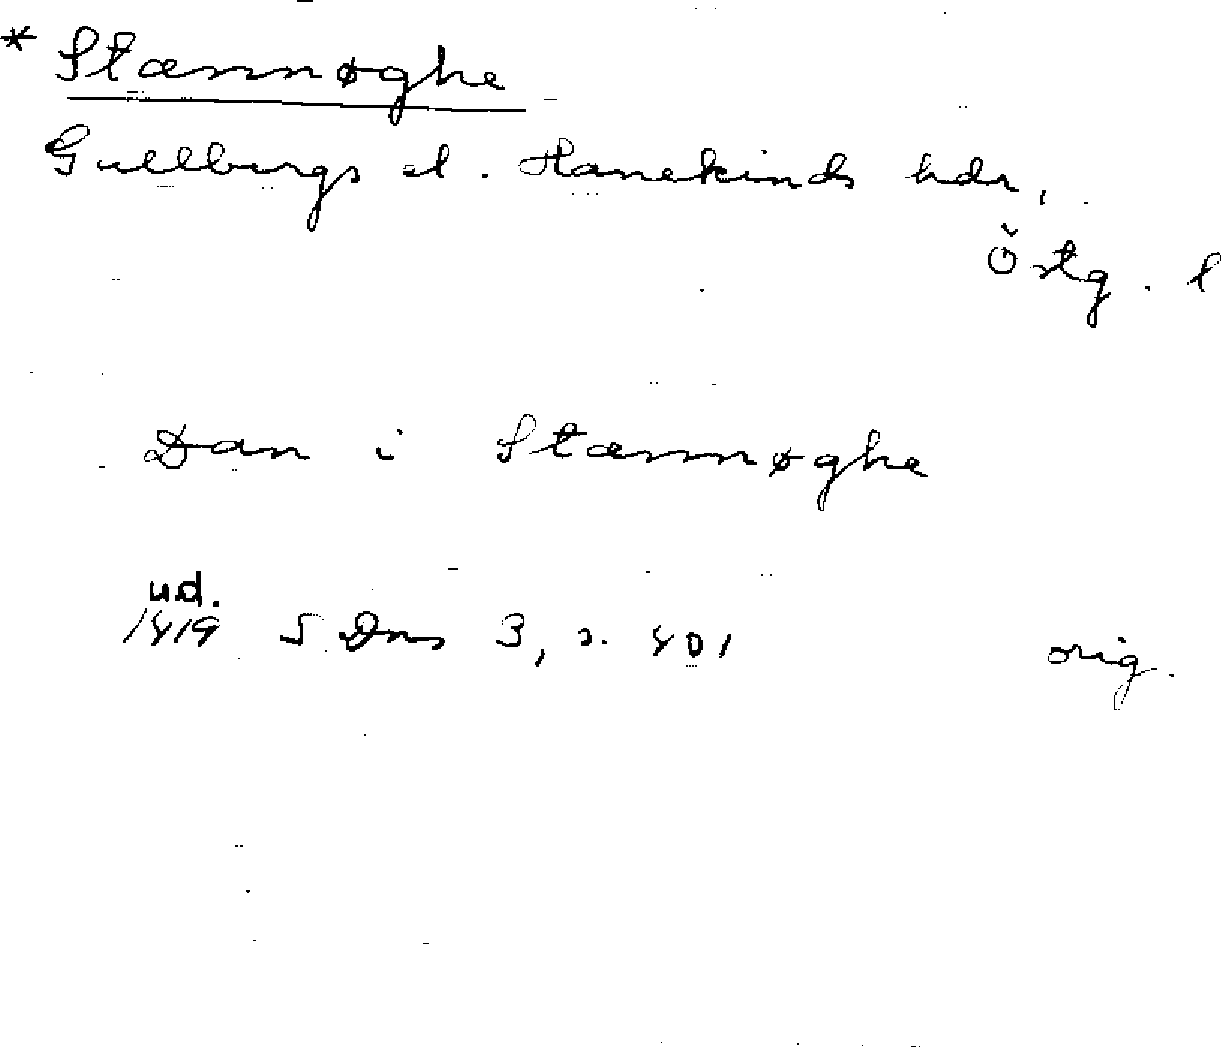 * Stæmnøghe
Gullbergs el. Hanekinds hdr,
Östg. l
Dan i Stæmnøghe
ud.
1419 S Dns 3, s. 401 orig.